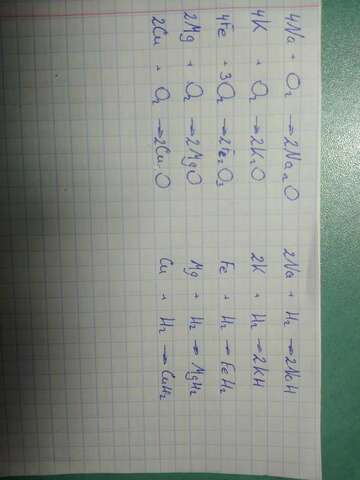 4Na + O₂ → 2Na₂O
4K + O₂ → 2K₂O
4Fe + 3O₂ → 2Fe₂O₃
2Mg + O₂ → 2MgO
2Cu + O₂ → 2CuO
2Na + H₂ → 2NaH
2K + H₂ → 2KH
Fe + H₂ → FeH₂
Mg + H₂ → MgH₂
Cu + H₂ → CuH₂